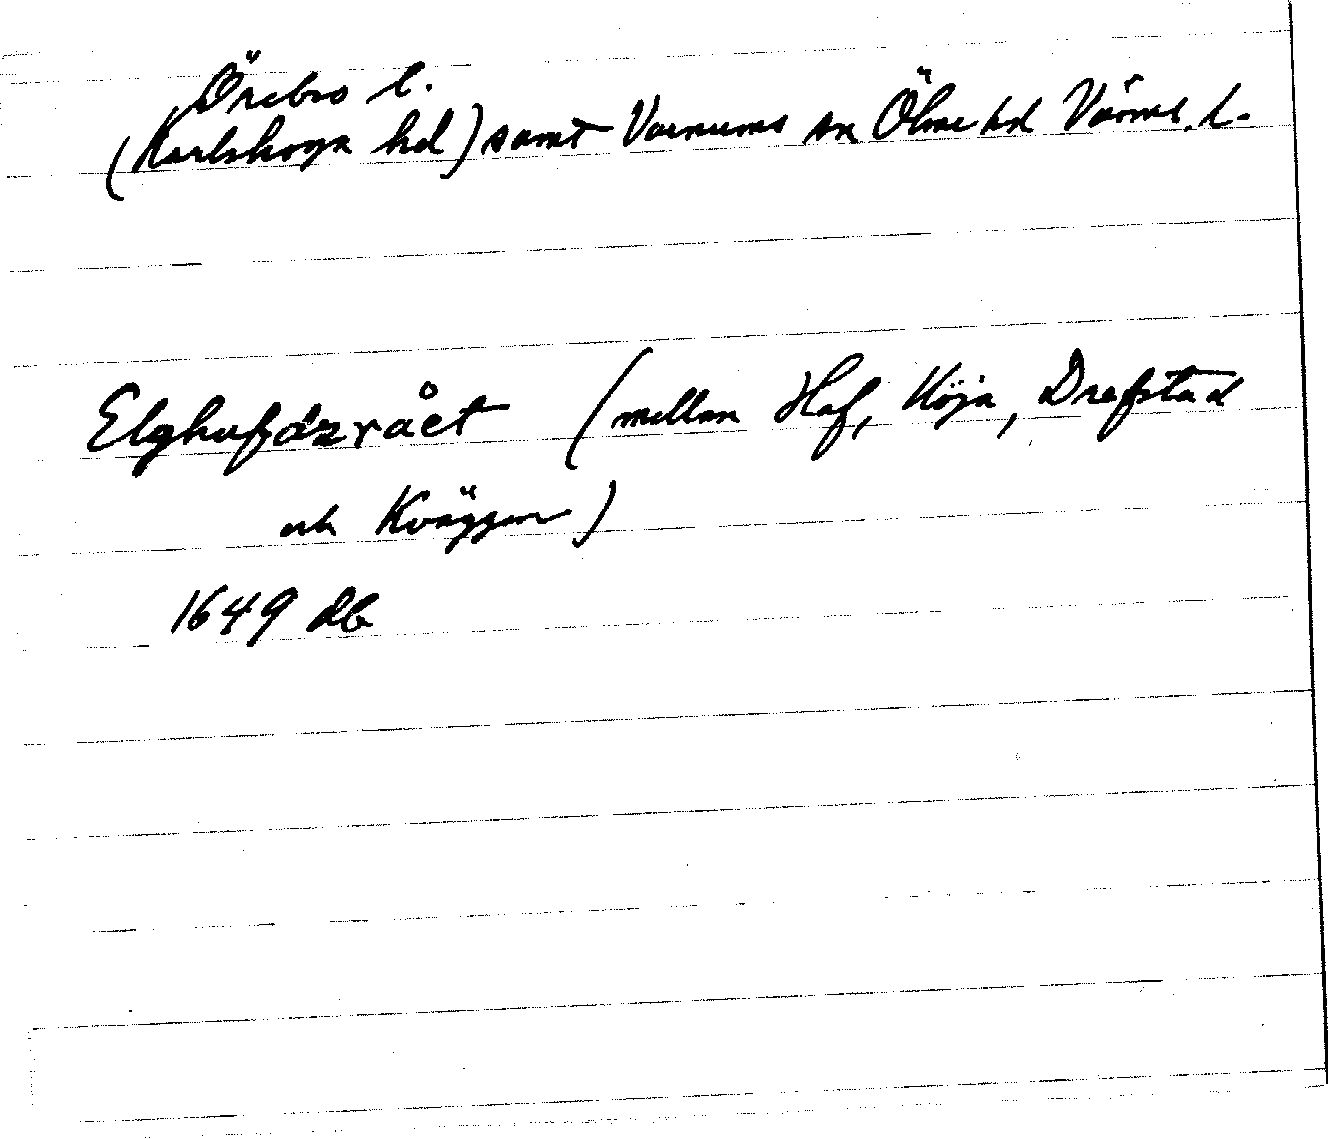 Örebro l.
(Karlskoga hd) samt Varnums sn Ölme hd Värml. l.
Elghufdzrået (mellan Haf, Höja, Drafstad
och Kväggen)
1649 db